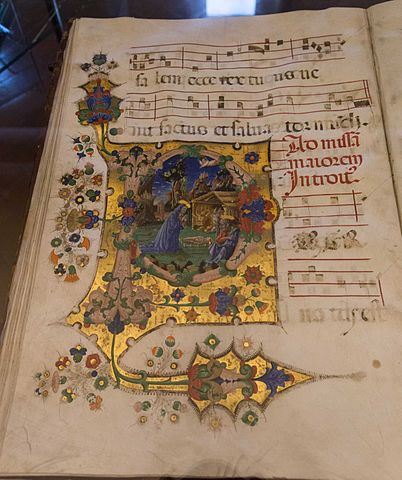 sa lem ecce rex tuus ue
nit sactus et saluator
Ad missā
maiorem
Introit